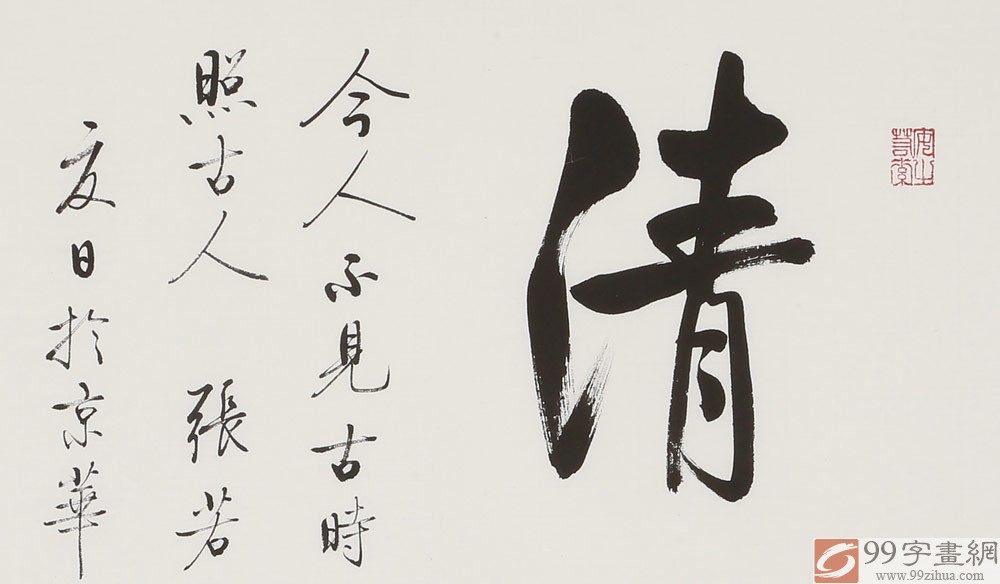 安之
若素
清
今人不見古時
照古人 張若
夏日於京華
99字畫網
www.99zihua.com